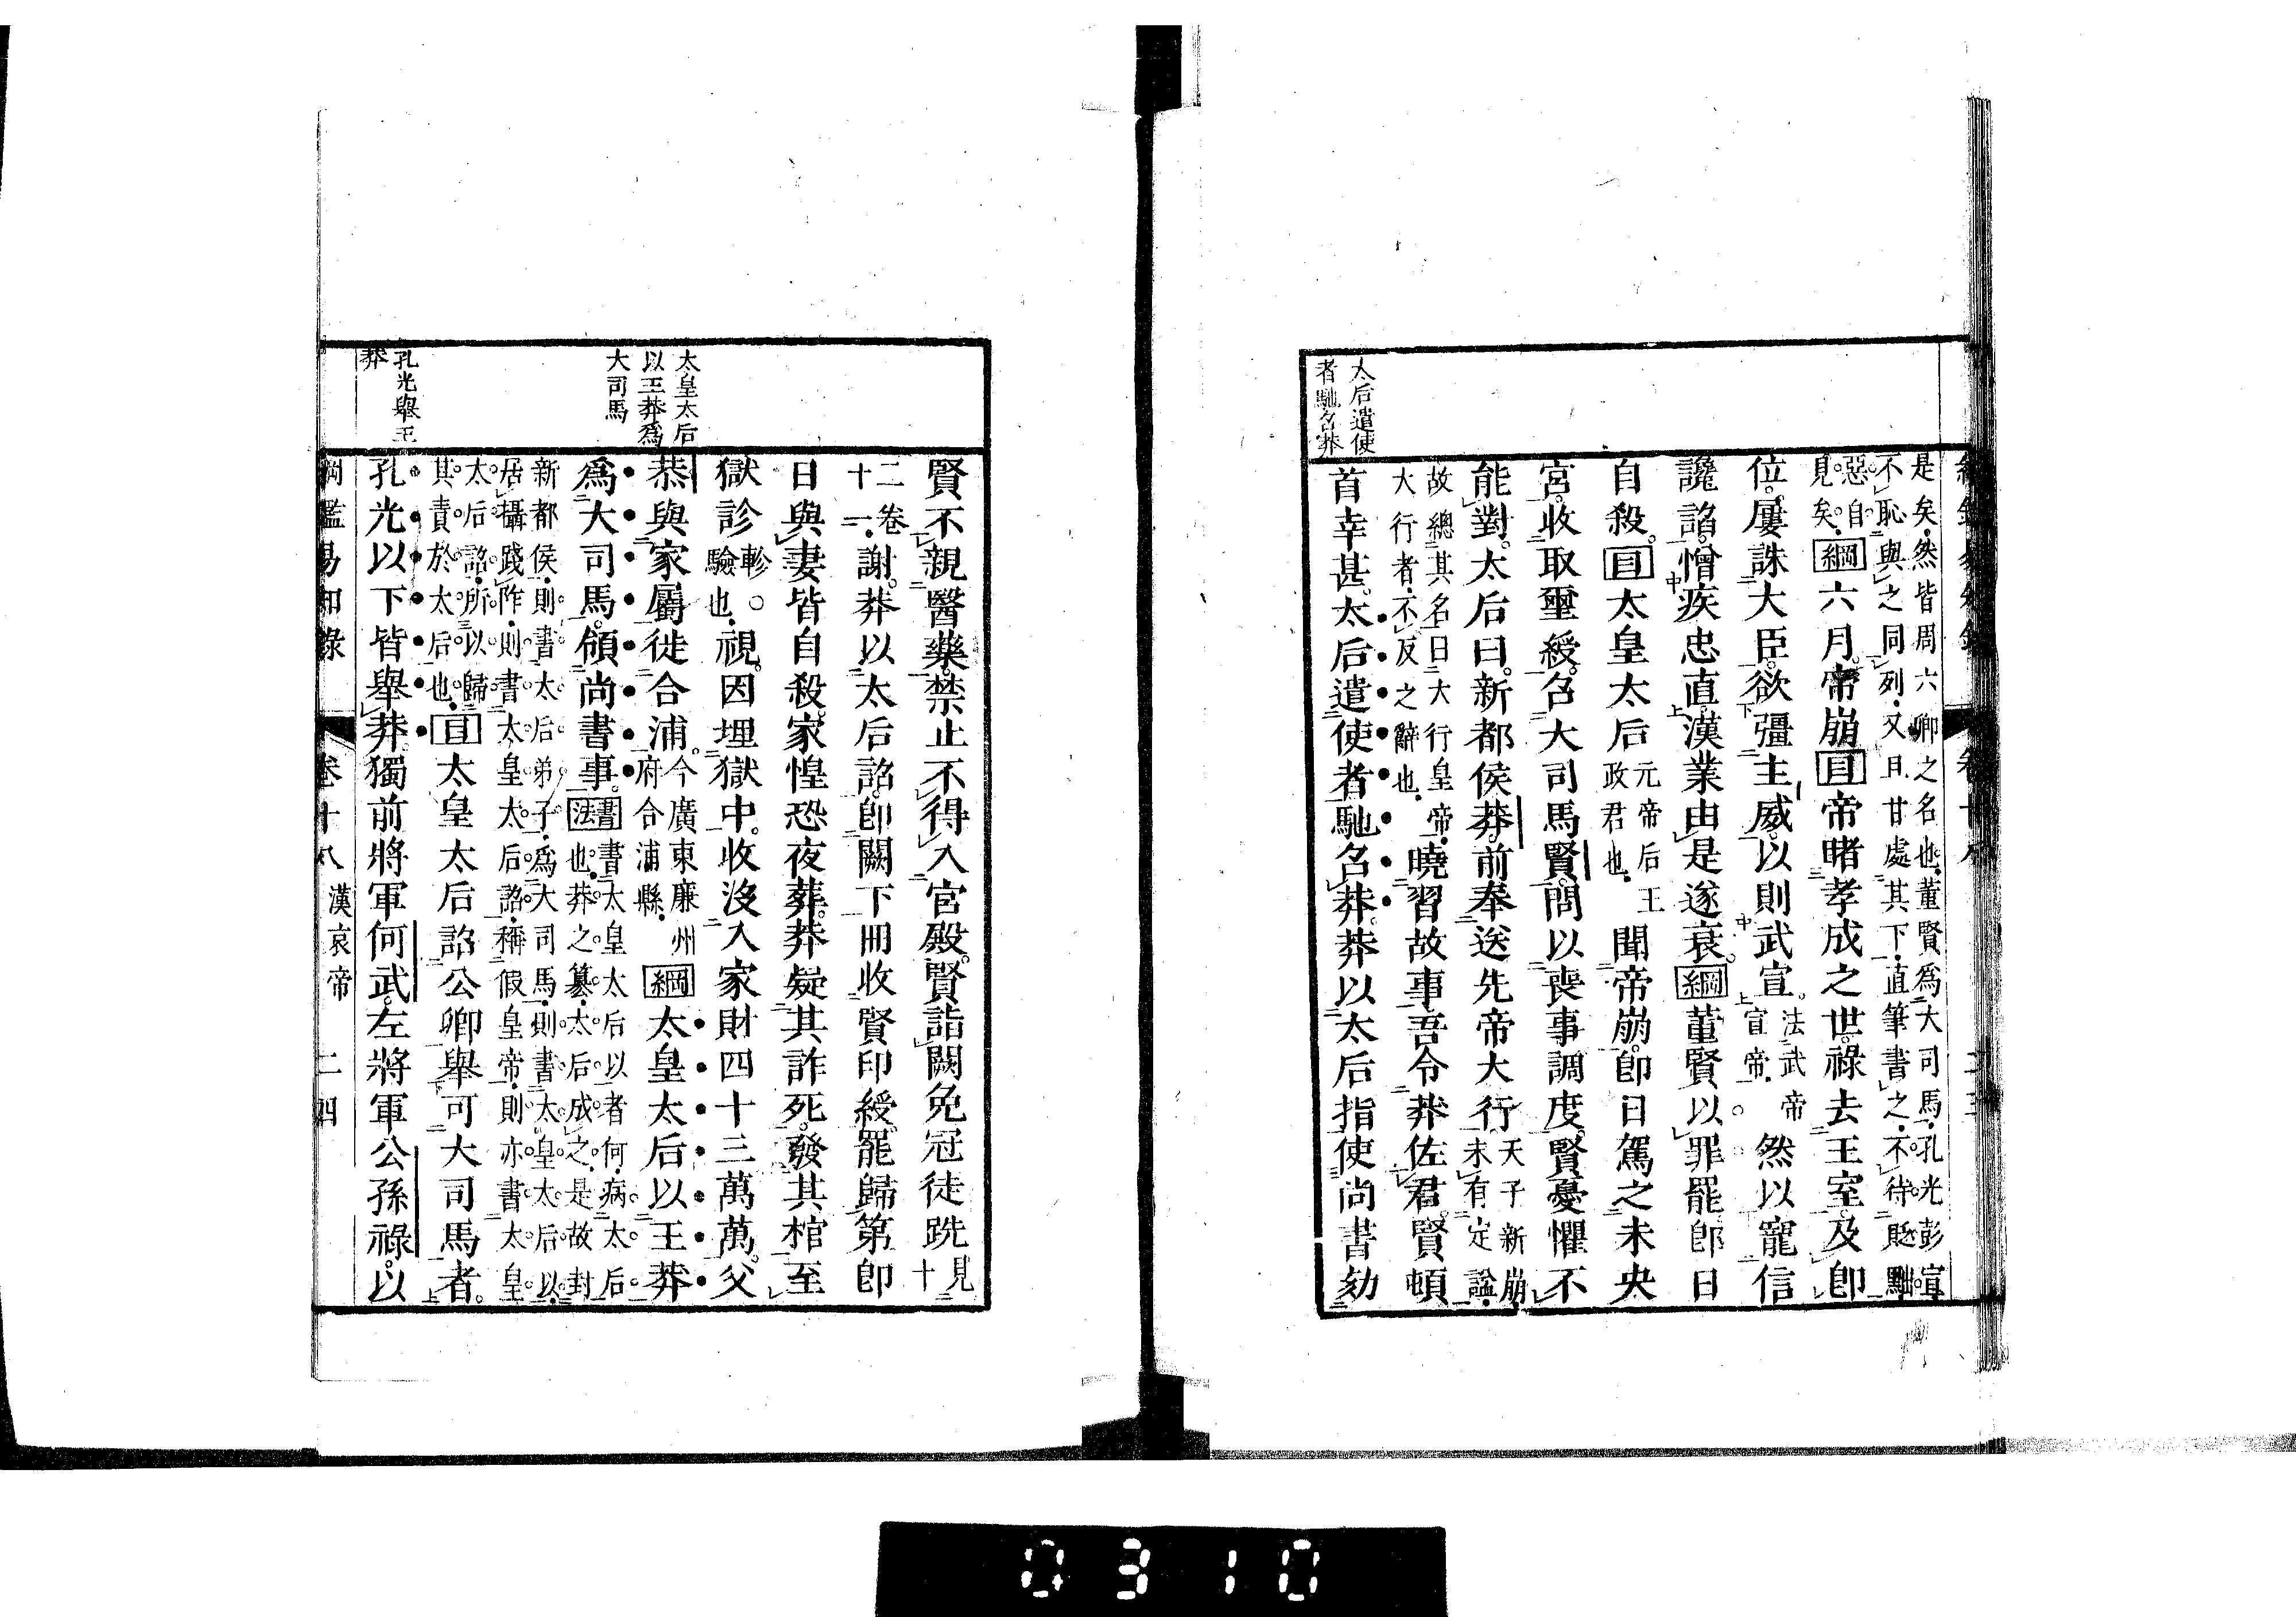 太后遣使
者馳召莽
是矣然皆周六卿之名也董賢爲大司馬孔光彭宣
不恥與之同列又且甘處其下直筆書之不待貶黜
惡自
見矣綱六月帝崩目帝睹孝成之世祿去王室及卽
位屢誅大臣欲彊主威以則武宣法武帝宣帝然以寵信
讒諂憎疾忠直漢業由是遂衰綱董賢以罪罷卽日
自殺目太皇太后元帝后王政君也聞帝崩卽日駕之未央
宮收取璽綬召大司馬賢問以喪事調度賢憂懼不
能對太后曰新都侯莽前奉送先帝大行天子新崩未有定諡
故總其名曰大行皇帝
大行者不反之辭也曉習故事吾令莽佐君賢頓
首幸甚太后遣使者馳召莽莽以太后指使尚書劾
太皇太后
以王莽爲
大司馬
孔光舉王
莽
賢不親醫藥禁止不得入宮殿賢詣闕免冠徒跣見十
二卷
十一謝莽以太后詔卽闕下冊收賢印綬罷歸第卽
日與妻皆自殺家惶恐夜葬莽疑其詐死發其棺至
獄診軫驗也視因埋獄中收沒入家財四十三萬萬父
恭與家屬徙合浦今廣東廉州府合浦縣綱太皇太后以王莽
爲大司馬領尚書事書法書太皇太后以者何病太后也莽之篡太后成之是故封
新都侯則書太后弟子爲大司馬則書太皇太后以
居攝踐阼則書太皇太后詔稱假皇帝則亦書太皇
太后詔所以歸
其責於太后也目太皇太后詔公卿舉可大司馬者
孔光以下皆舉莽獨前將軍何武左將軍公孫祿以
綱鑑易知錄 卷十八 漢哀帝 二四